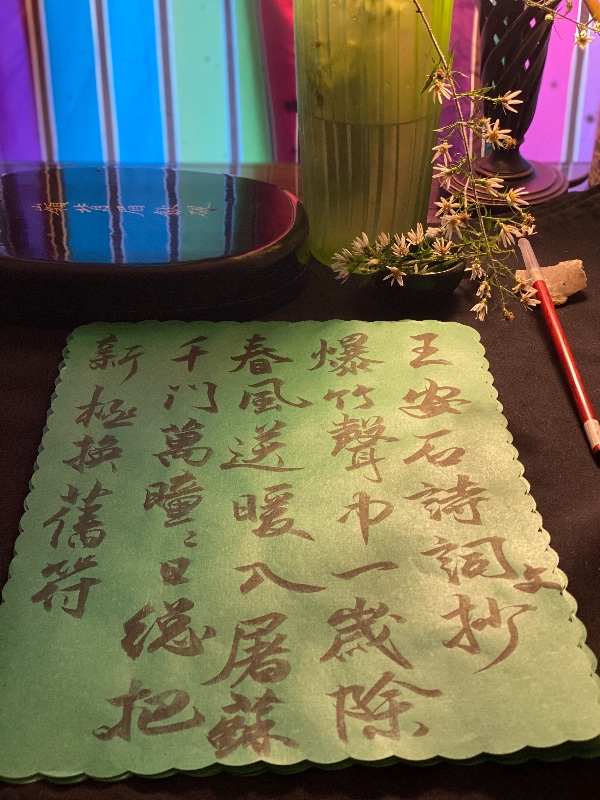 王安石詩詞文抄
爆竹聲中一歲除
春風送暖入屠蘇
千门萬瞳〻日總把
新桃換舊符